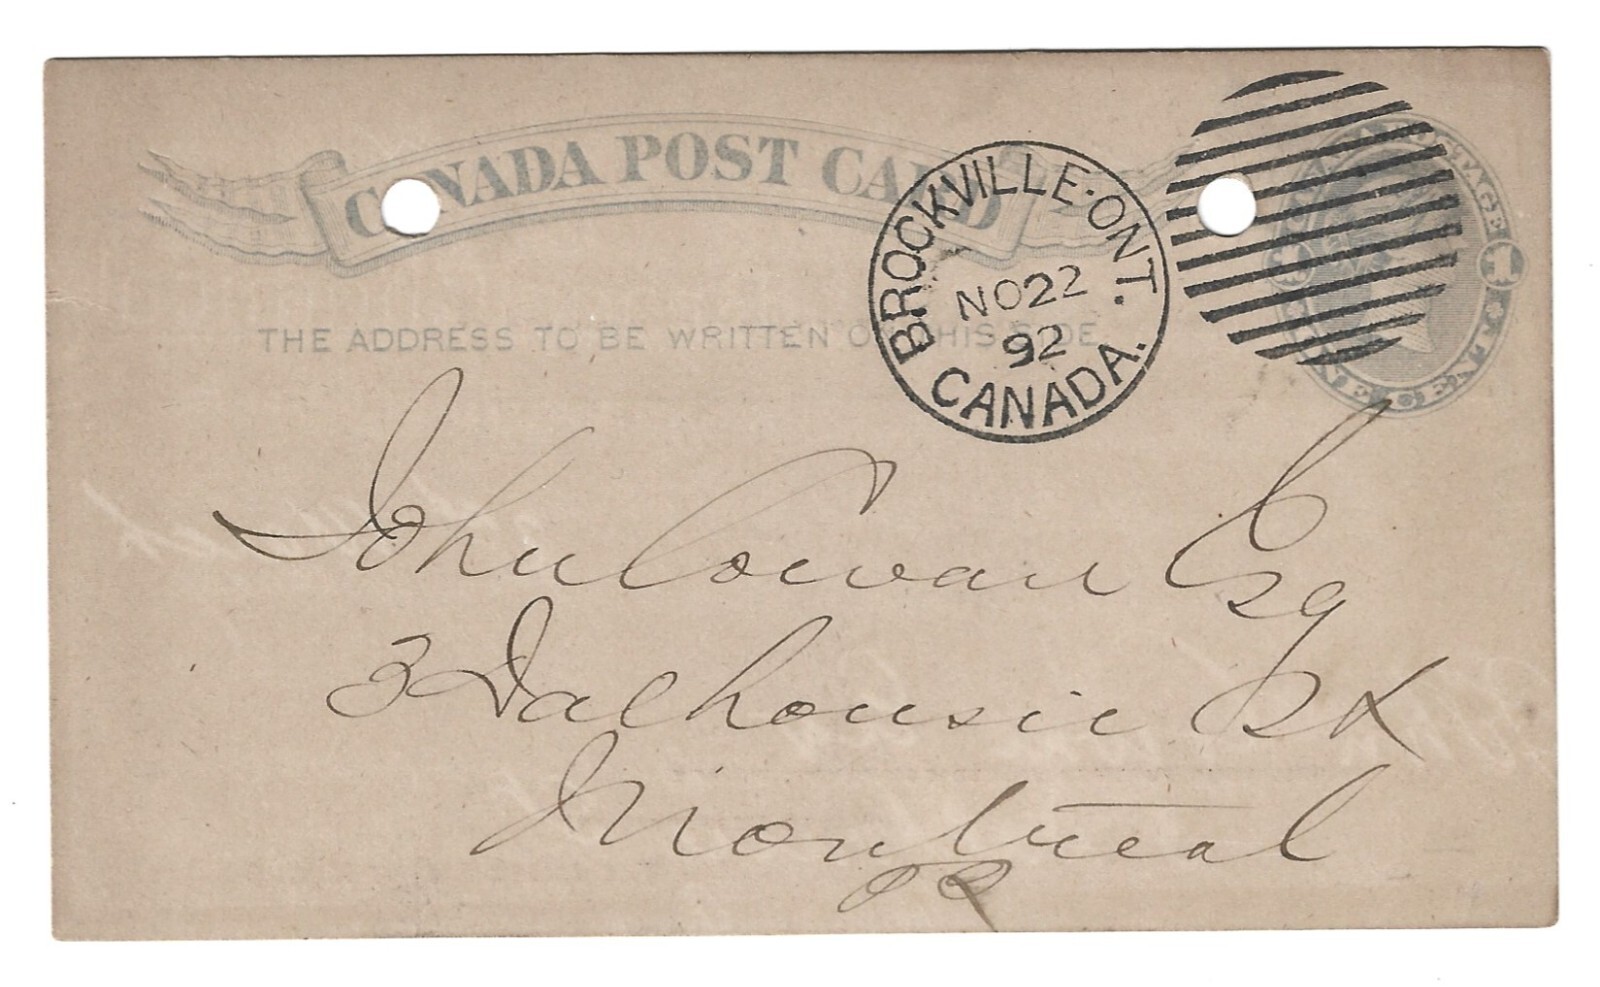 CANADA POST CARD
BROCKVILLE·ONT.
NO 22
92
CANADA.
POSTAGE
1
ONE CENT
THE ADDRESS TO BE WRITTEN ON THIS SIDE
John Cowan Esq
3 Dalhousie St
Montreal